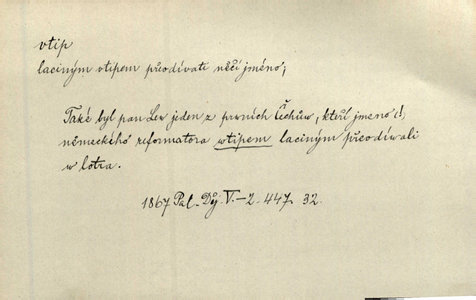 vtip
laciným vtipem přeodívati něčí jméno;
Také byl pan Lev jeden z prvních Čechůw, kteří jmeno (!)
německého reformatora wtipem laciným přeodíwali
w lotra.
1867 Pal. Děj. V.-2. 447. 32.